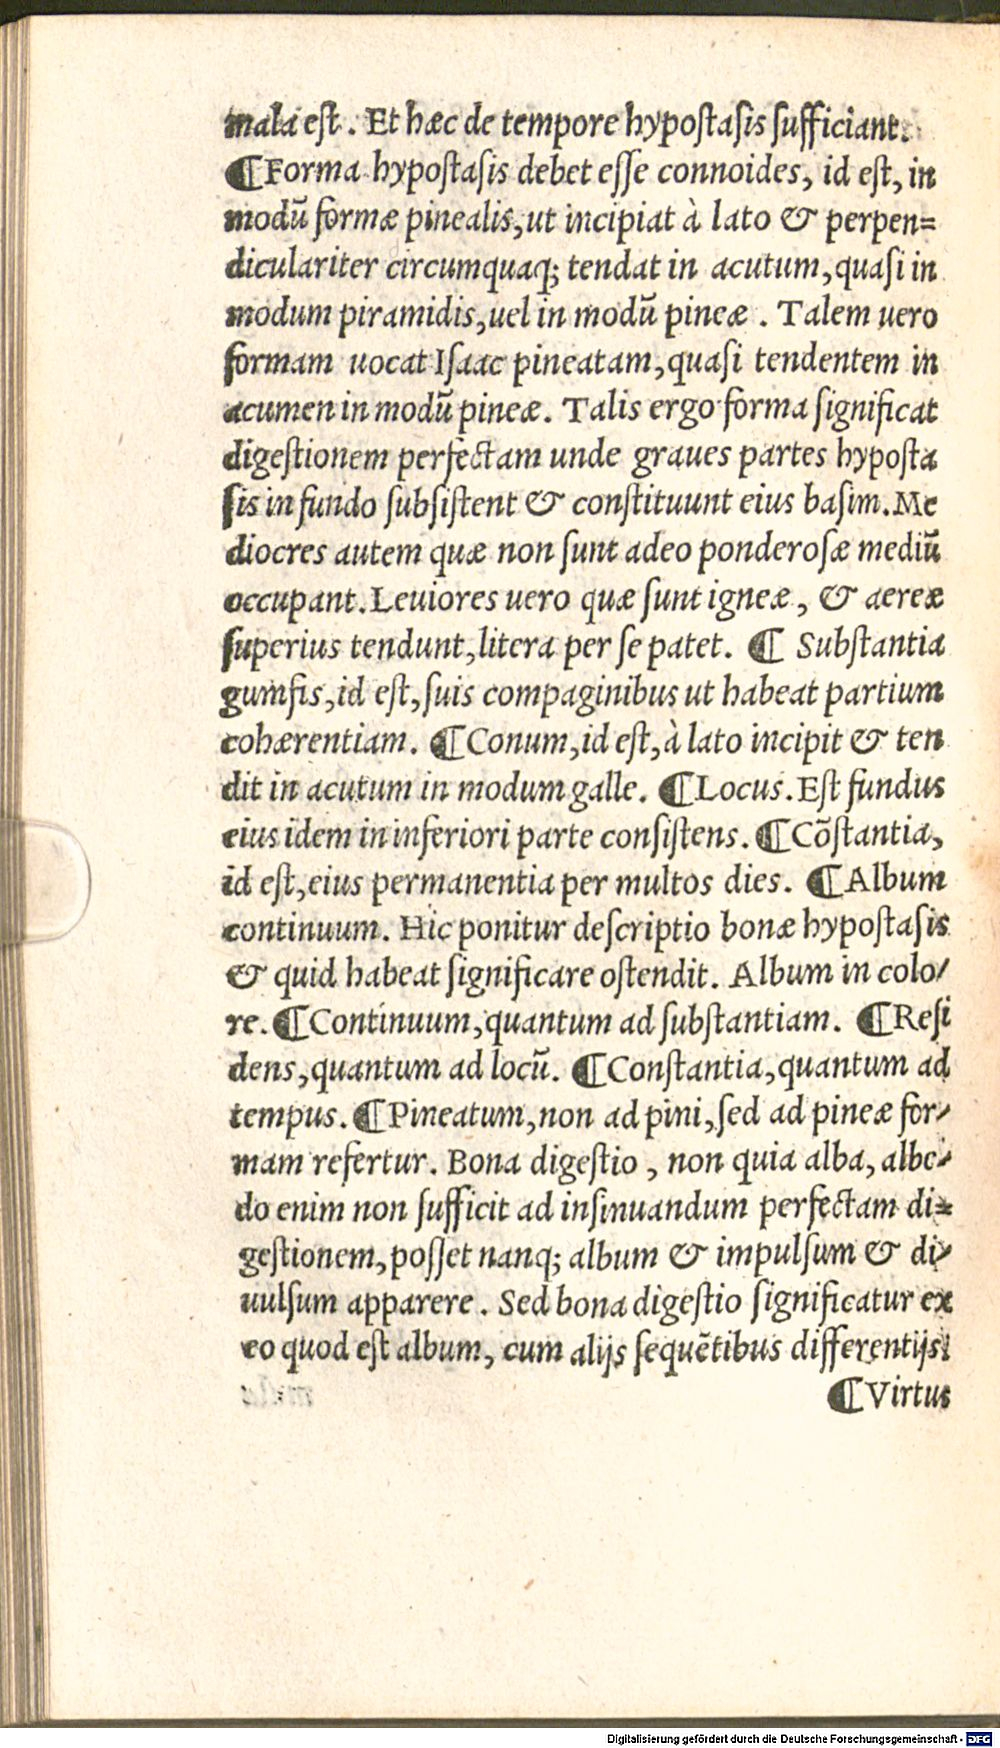 mala est. Et hæc de tempore hypostasis sufficiant.
¶Forma hypostasis debet esse connoides, id est, in
modū formæ pinealis, ut incipiat à lato & perpen=
diculariter circumquaq; tendat in acutum, quasi in
modum piramidis, uel in modū pineæ. Talem uero
formam uocat Isaac pineatam, quasi tendentem in
acumen in modū pineæ. Talis ergo forma significat
digestionem perfectam unde graues partes hyposta
sis in fundo subsistent & constituunt eius basim. Me
diocres autem quæ non sunt adeo ponderosæ mediū
occupant. Leuiores uero quæ sunt igneæ, & aereæ
superius tendunt, litera per se patet. ¶ Substantia
gumfis, id est, suis compaginibus ut habeat partium
cohærentiam. ¶Conum, id est, à lato incipit & ten
dit in acutum in modum galle. ¶Locus. Est fundus
eius idem in inferiori parte consistens. ¶Cōstantia,
id est, eius permanentia per multos dies. ¶Album
continuum. Hic ponitur descriptio bonæ hypostasis
& quid habeat significare ostendit. Album in colo/
re. ¶Continuum, quantum ad substantiam. ¶Resi
dens, quantum ad locū. ¶Constantia, quantum ad
tempus. ¶Pineatum, non ad pini, sed ad pineæ for/
mam refertur. Bona digestio, non quia alba, albe/
do enim non sufficit ad insinuandum perfectam di=
gestionem, posset nanq; album & impulsum & di/
uulsum apparere. Sed bona digestio significatur ex
eo quod est album, cum alijs sequētibus differentijs.
¶Virtus
Digitalisierung gefördert durch die Deutsche Forschungsgemeinschaft - DFG